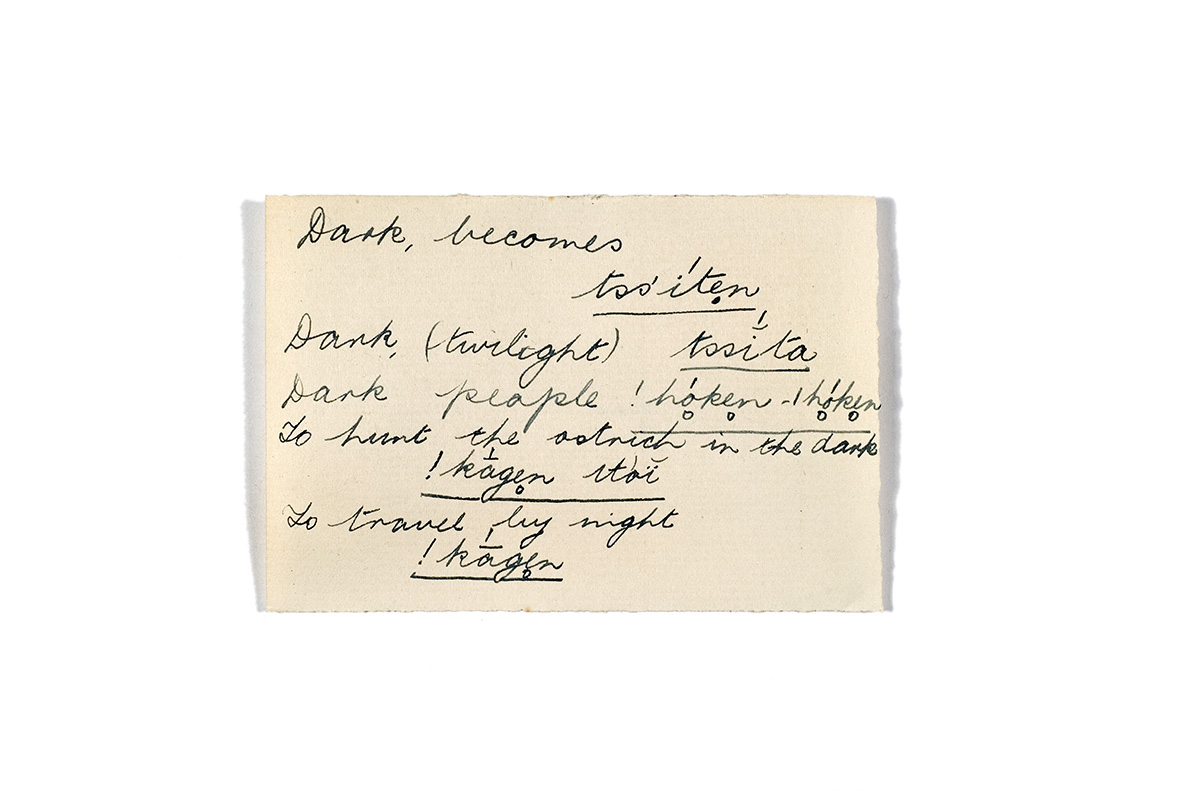 Dark, becomes
tss'íte̥n
Dark, (twilight) tssī́ta
Dark people !hó̥ke̥n-!hó̥ke̥n
To hunt the ostrich in the dark
!kā́ge̥n
To travel by night
!kā́ge̥n